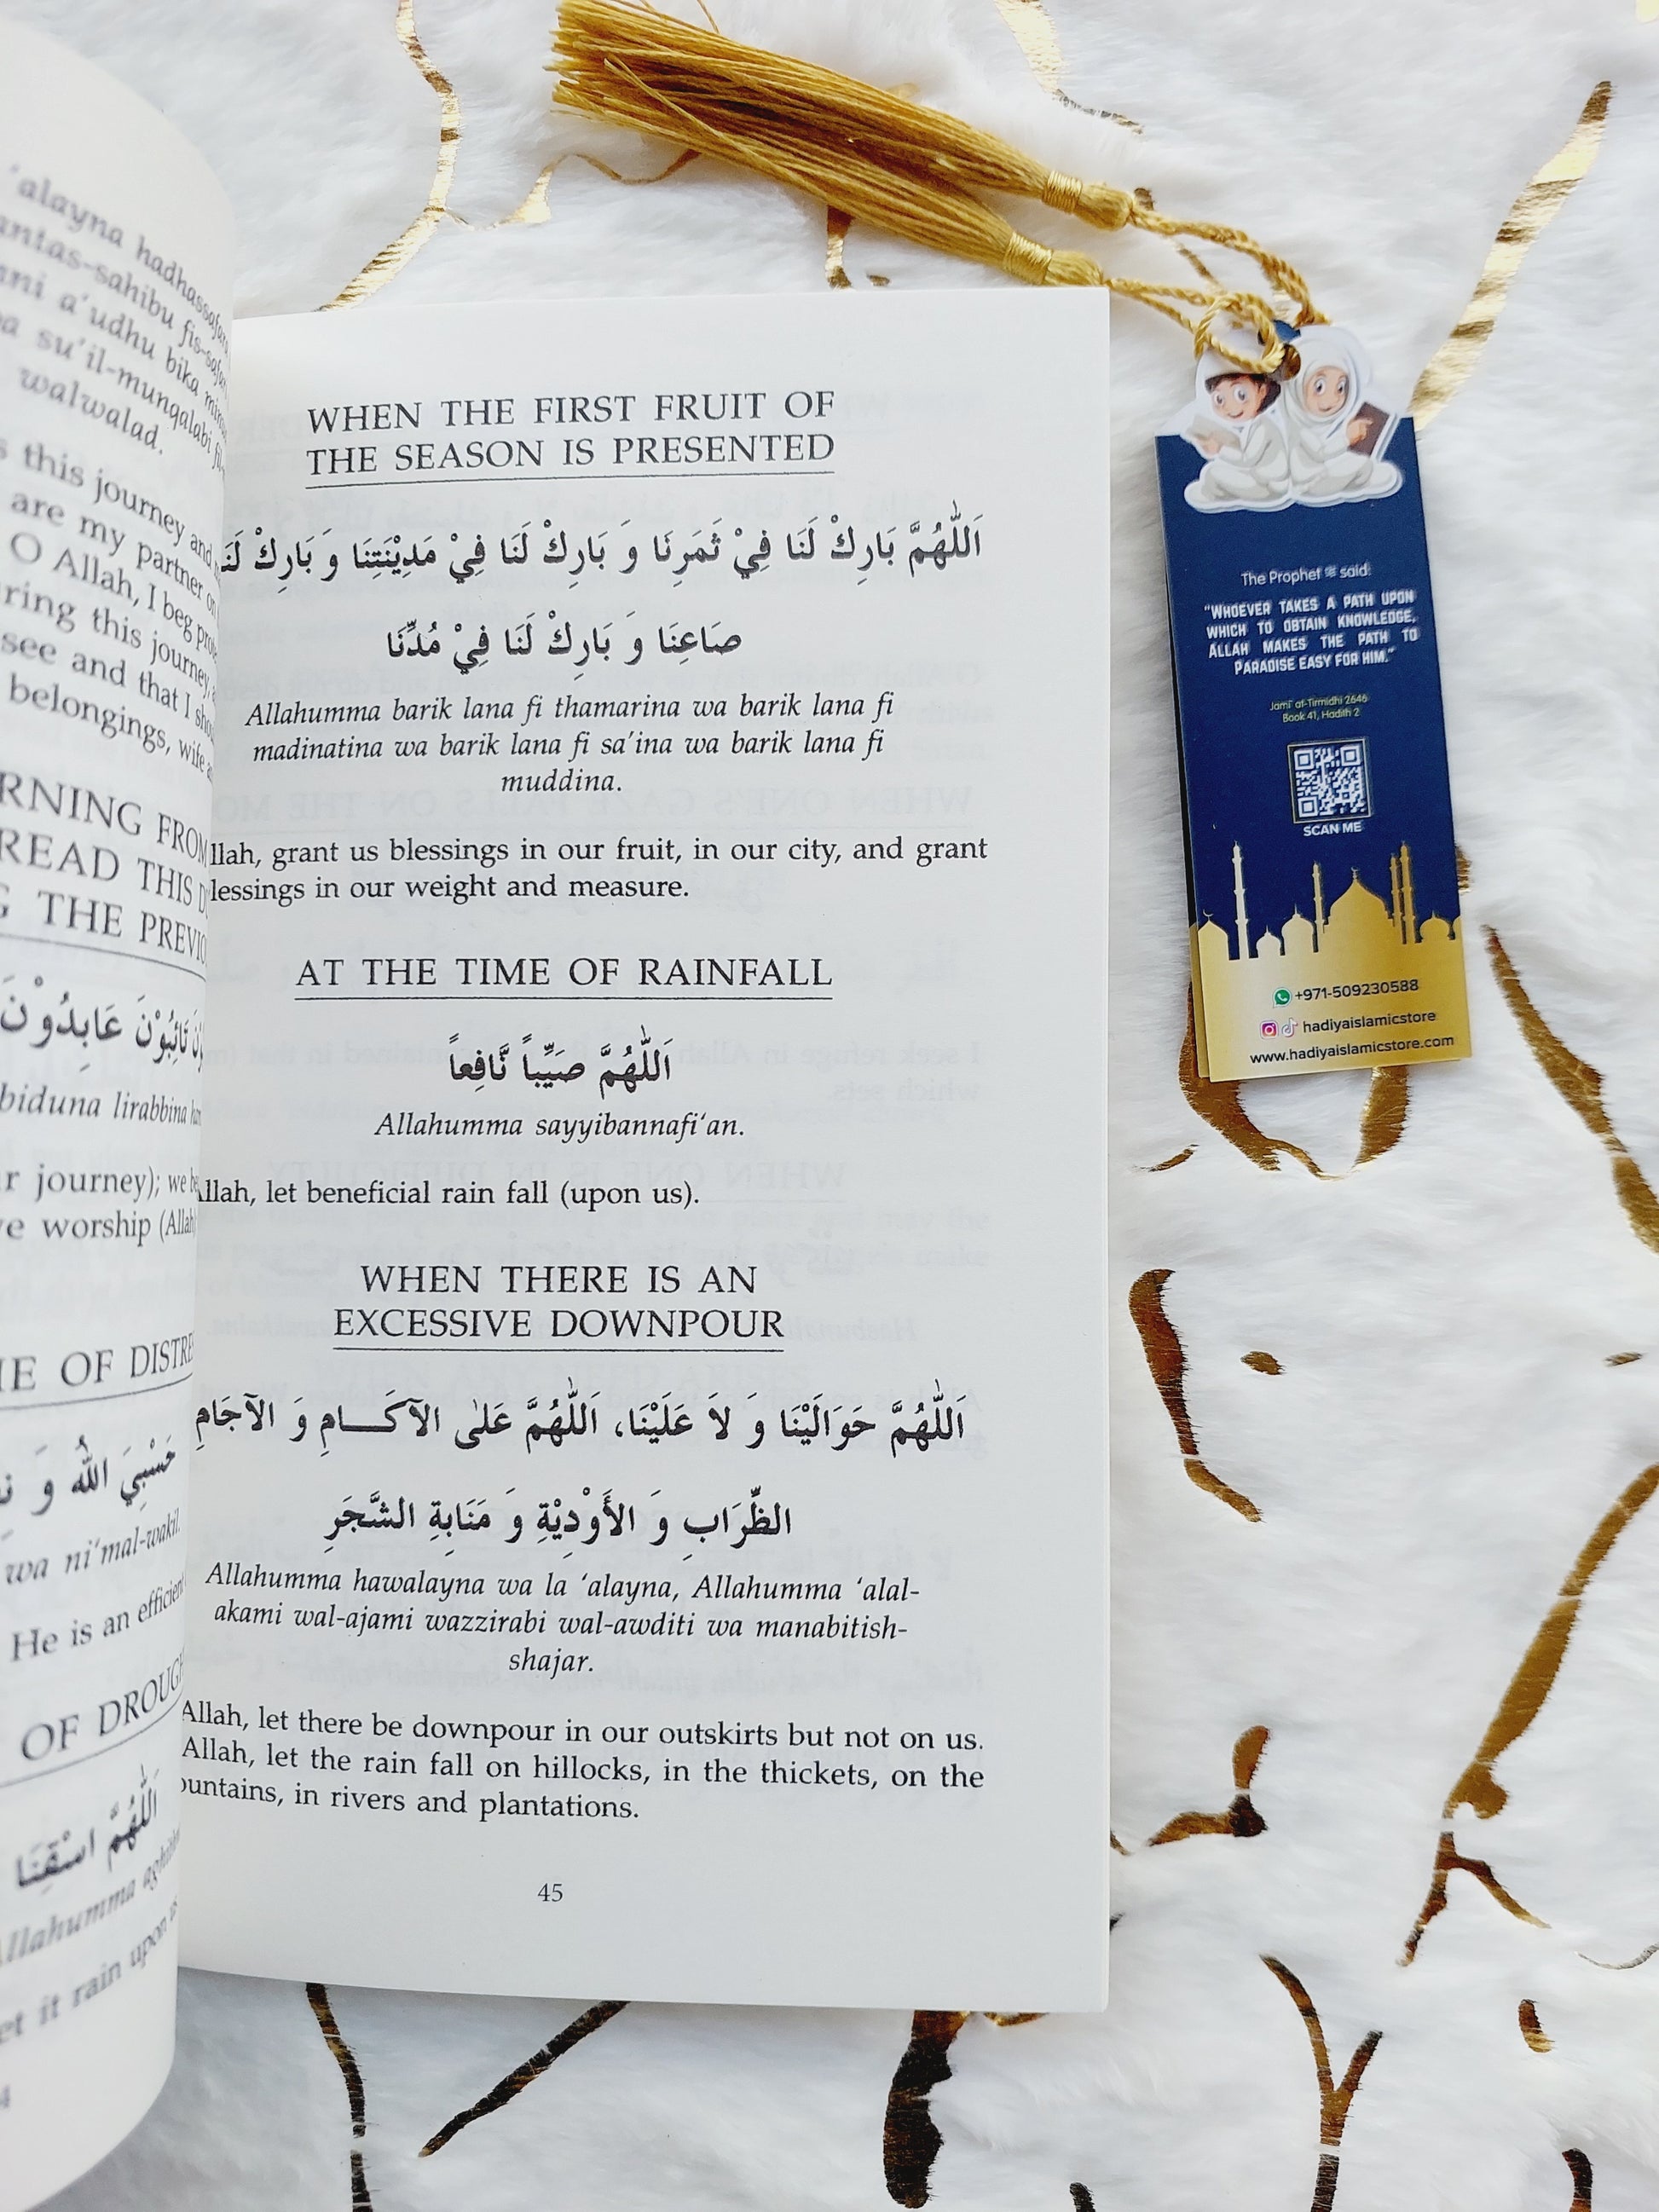 'alayna hadhassafara
antas-sahibu fis-safar
a'udhu bika
su'il-munqalabi
walwalad.
this journey and
are my partner on
O Allah, I beg
this journey,
see and that I
belongings, wife
FROM
READ THIS
THE
تَائِبُوْنَ عَابِدُوْنَ
lirabbina
journey); we
worship (Allah
OF
حَسْبِيَ اللهُ وَ
wa ni'mal-wakil.
He is an efficient
OF
اَللّٰهُمَّ اسْقِنَا
Allahumma
it rain upon
WHEN THE FIRST FRUIT OF
THE SEASON IS PRESENTED
اَللّٰهُمَّ بَارِكْ لَنَا فِيْ ثَمَرِنَا وَ بَارِكْ لَنَا فِيْ مَدِيْنَتِنَا وَ بَارِكْ لَنَا
صَاعِنَا وَ بَارِكْ لَنَا فِيْ مُدِّنَا
Allahumma barik lana fi thamarina wa barik lana fi
madinatina wa barik lana fi sa'ina wa barik lana fi
muddina.
llah, grant us blessings in our fruit, in our city, and grant
lessings in our weight and measure.
AT THE TIME OF RAINFALL
اَللّٰهُمَّ صَيِّباً نَّافِعاً
Allahumma sayyibannafi'an.
llah, let beneficial rain fall (upon us).
WHEN THERE IS AN
EXCESSIVE DOWNPOUR
اَللّٰهُمَّ حَوَالَيْنَا وَ لاَ عَلَيْنَا، اَللّٰهُمَّ عَلىٰ الآكَـــامِ وَ الآجَامِ
الظِّرَابِ وَ الأَوْدِيْةِ وَ مَنَابِةِ الشَّجَرِ
Allahumma hawalayna wa la 'alayna, Allahumma 'alal-
akami wal-ajami wazzirabi wal-awditi wa manabitish-
shajar.
Allah, let there be downpour in our outskirts but not on us.
Allah, let the rain fall on hillocks, in the thickets, on the
ountains, in rivers and plantations.
45
The Prophet ﷺ said:
"WHOEVER TAKES A PATH UPON
WHICH TO OBTAIN KNOWLEDGE,
ALLAH MAKES THE PATH TO
PARADISE EASY FOR HIM."
Jami' at-Tirmidhi 2646
Book 41, Hadith 2
SCAN ME
+971-509230588
hadiyaislamicstore
www.hadiyaislamicstore.com